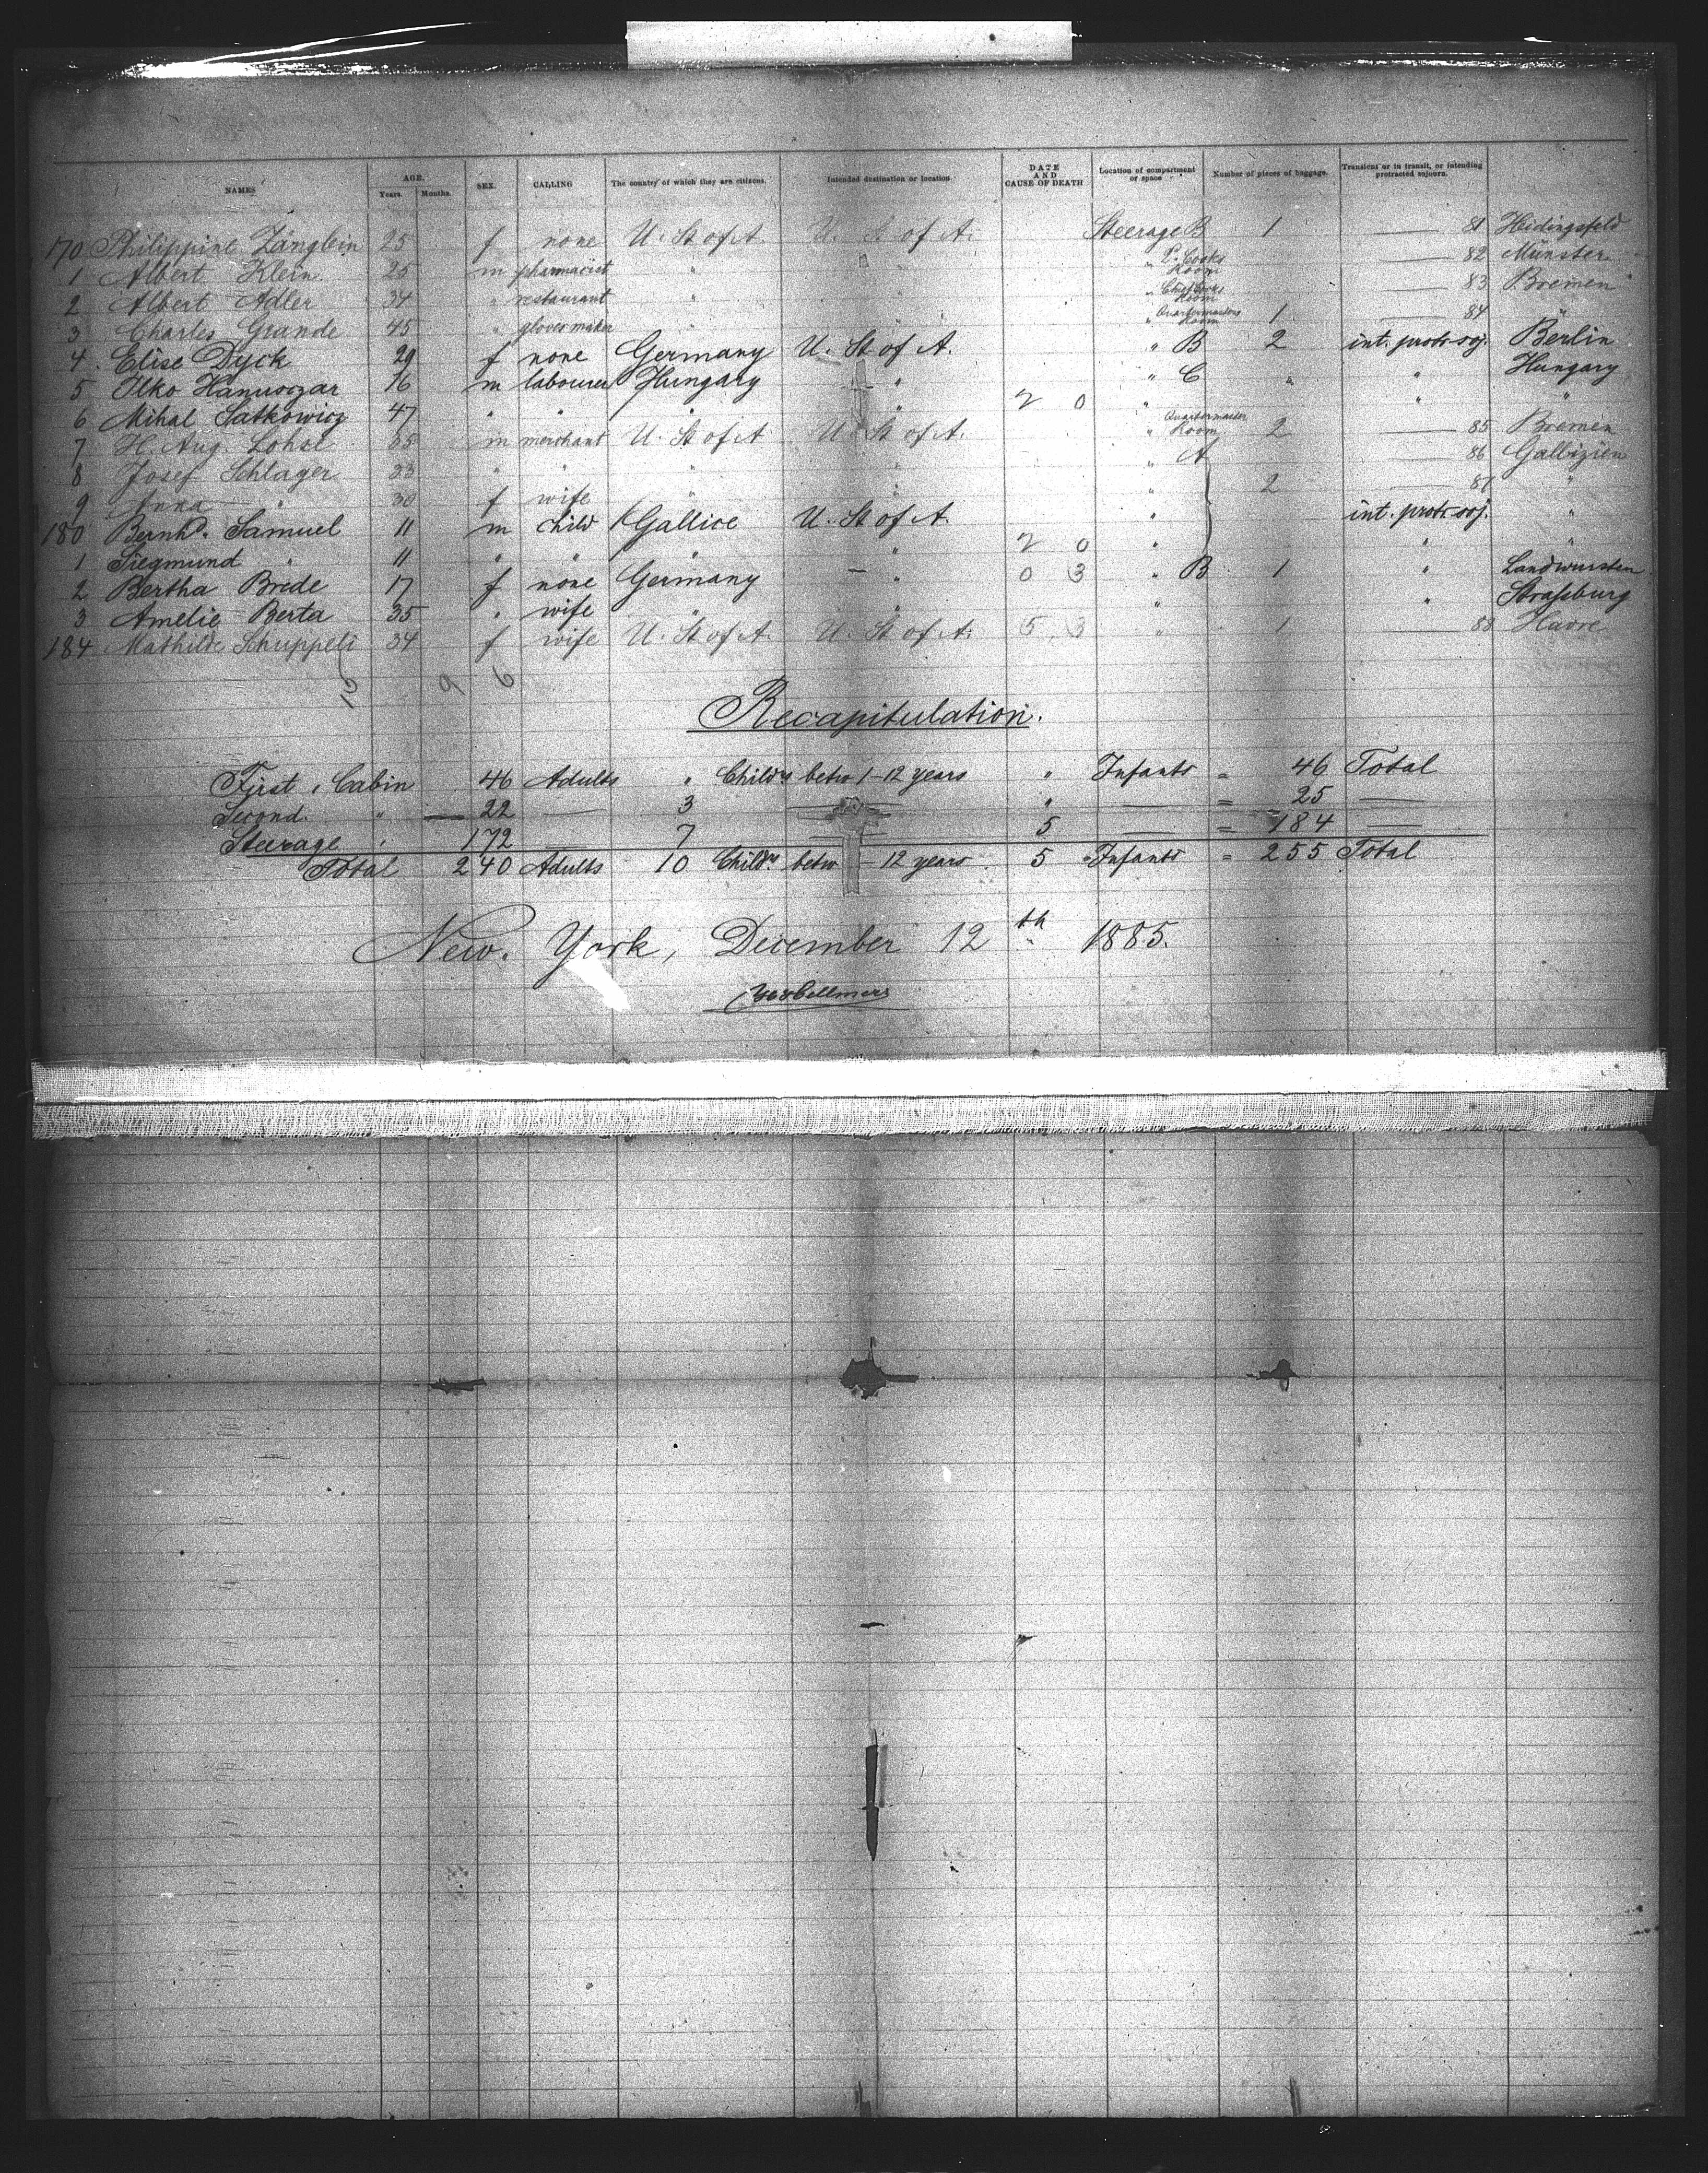 NAMES AGE. Years. Months. SEX. CALLING The country of which they are citizens. Intended destination or location. DATE AND CAUSE OF DEATH Location of compartment or space Number of pieces of baggage. Transient or in transit, or intending protracted sojourn.
170 Philippine Zänglein 25 f none U. St of A. U. St of A. Steerage B 1 — 81 Heidingsfeld
1 Albert Klein 25 m pharmacist " " " Cooks Room — 82 Münster
2 Albert Adler 34 " restaurant " " " Chief Cooks Room — 83 Bremen
3 Charles Grande 45 " glovesmaker " " " Quartermasters Room 1 — 84 "
4 Elise Dyck 29 f none Germany U. St of A. " B 2 int. protr. soj. Berlin
5 Ilko Hanusczar 16 m labourer Hungary " " C " " Hungary
6 Mihal Satkowicz 47 " " " " 2 0 " " "
7 H. Aug. Lohse 65 m merchant U. St of A U. St of A. " Quartermaster Room 2 — 85 Bremen
8 Josef Schlager 33 " " " " " A — 86 Gallizien
9 Anna " 30 f wife " " " 2 — 87 "
180 Bernhd. Samuel 11 m child Gallice U. St of A. " int. protr. soj. "
1 Siegmund " 11 " " " " 2 0 " " "
2 Bertha Brede 17 f none Germany " 0 3 " B 1 " Landwursten
3 Amelie Berta 35 " wife " " " " Straßburg
184 Mathilde Schuppeli 34 f wife U. St of A. U. St of A. 5 3 " 1 — 88 Havre
9 6
Recapitulation.
First Cabin 46 Adults " Childn betw 1-12 years " Infants = 46 Total
Second. " — 22 — 3 — " — = 25 —
Steerage " 172 — 7 — 5 — = 184 —
Total 240 Adults 10 Childn. betw — 12 years 5 Infants = 255 Total
New. York, December 12th 1885.